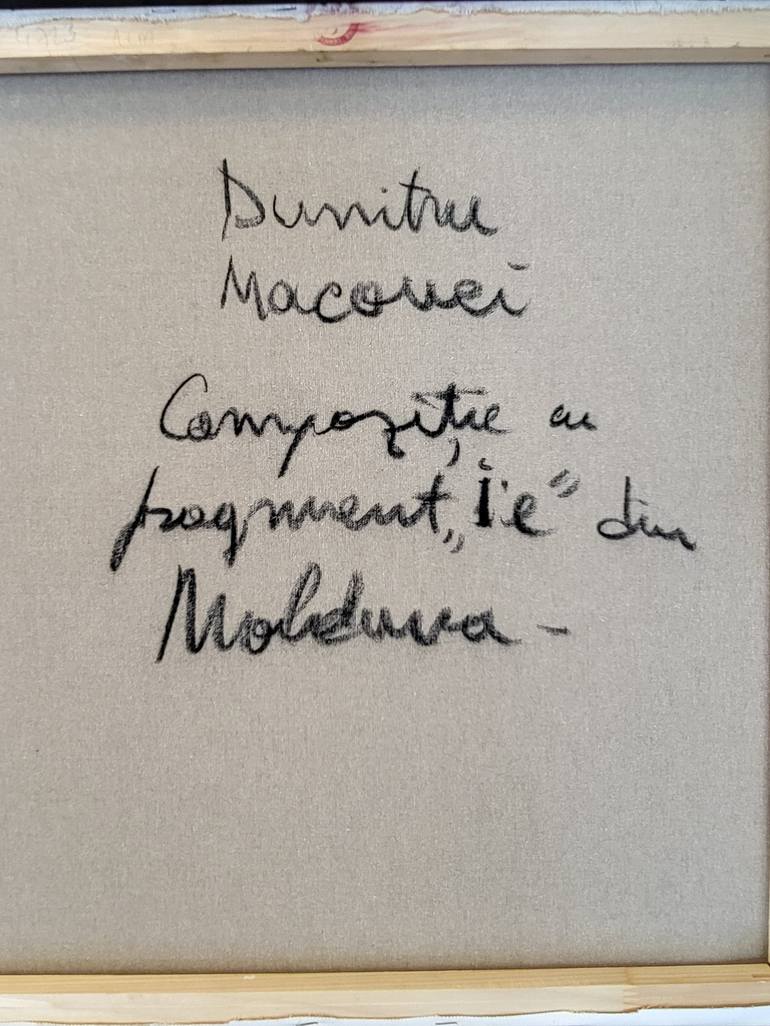 Dumitru
Macovei
Compoziție cu
fragment „Ie” din
Moldova -